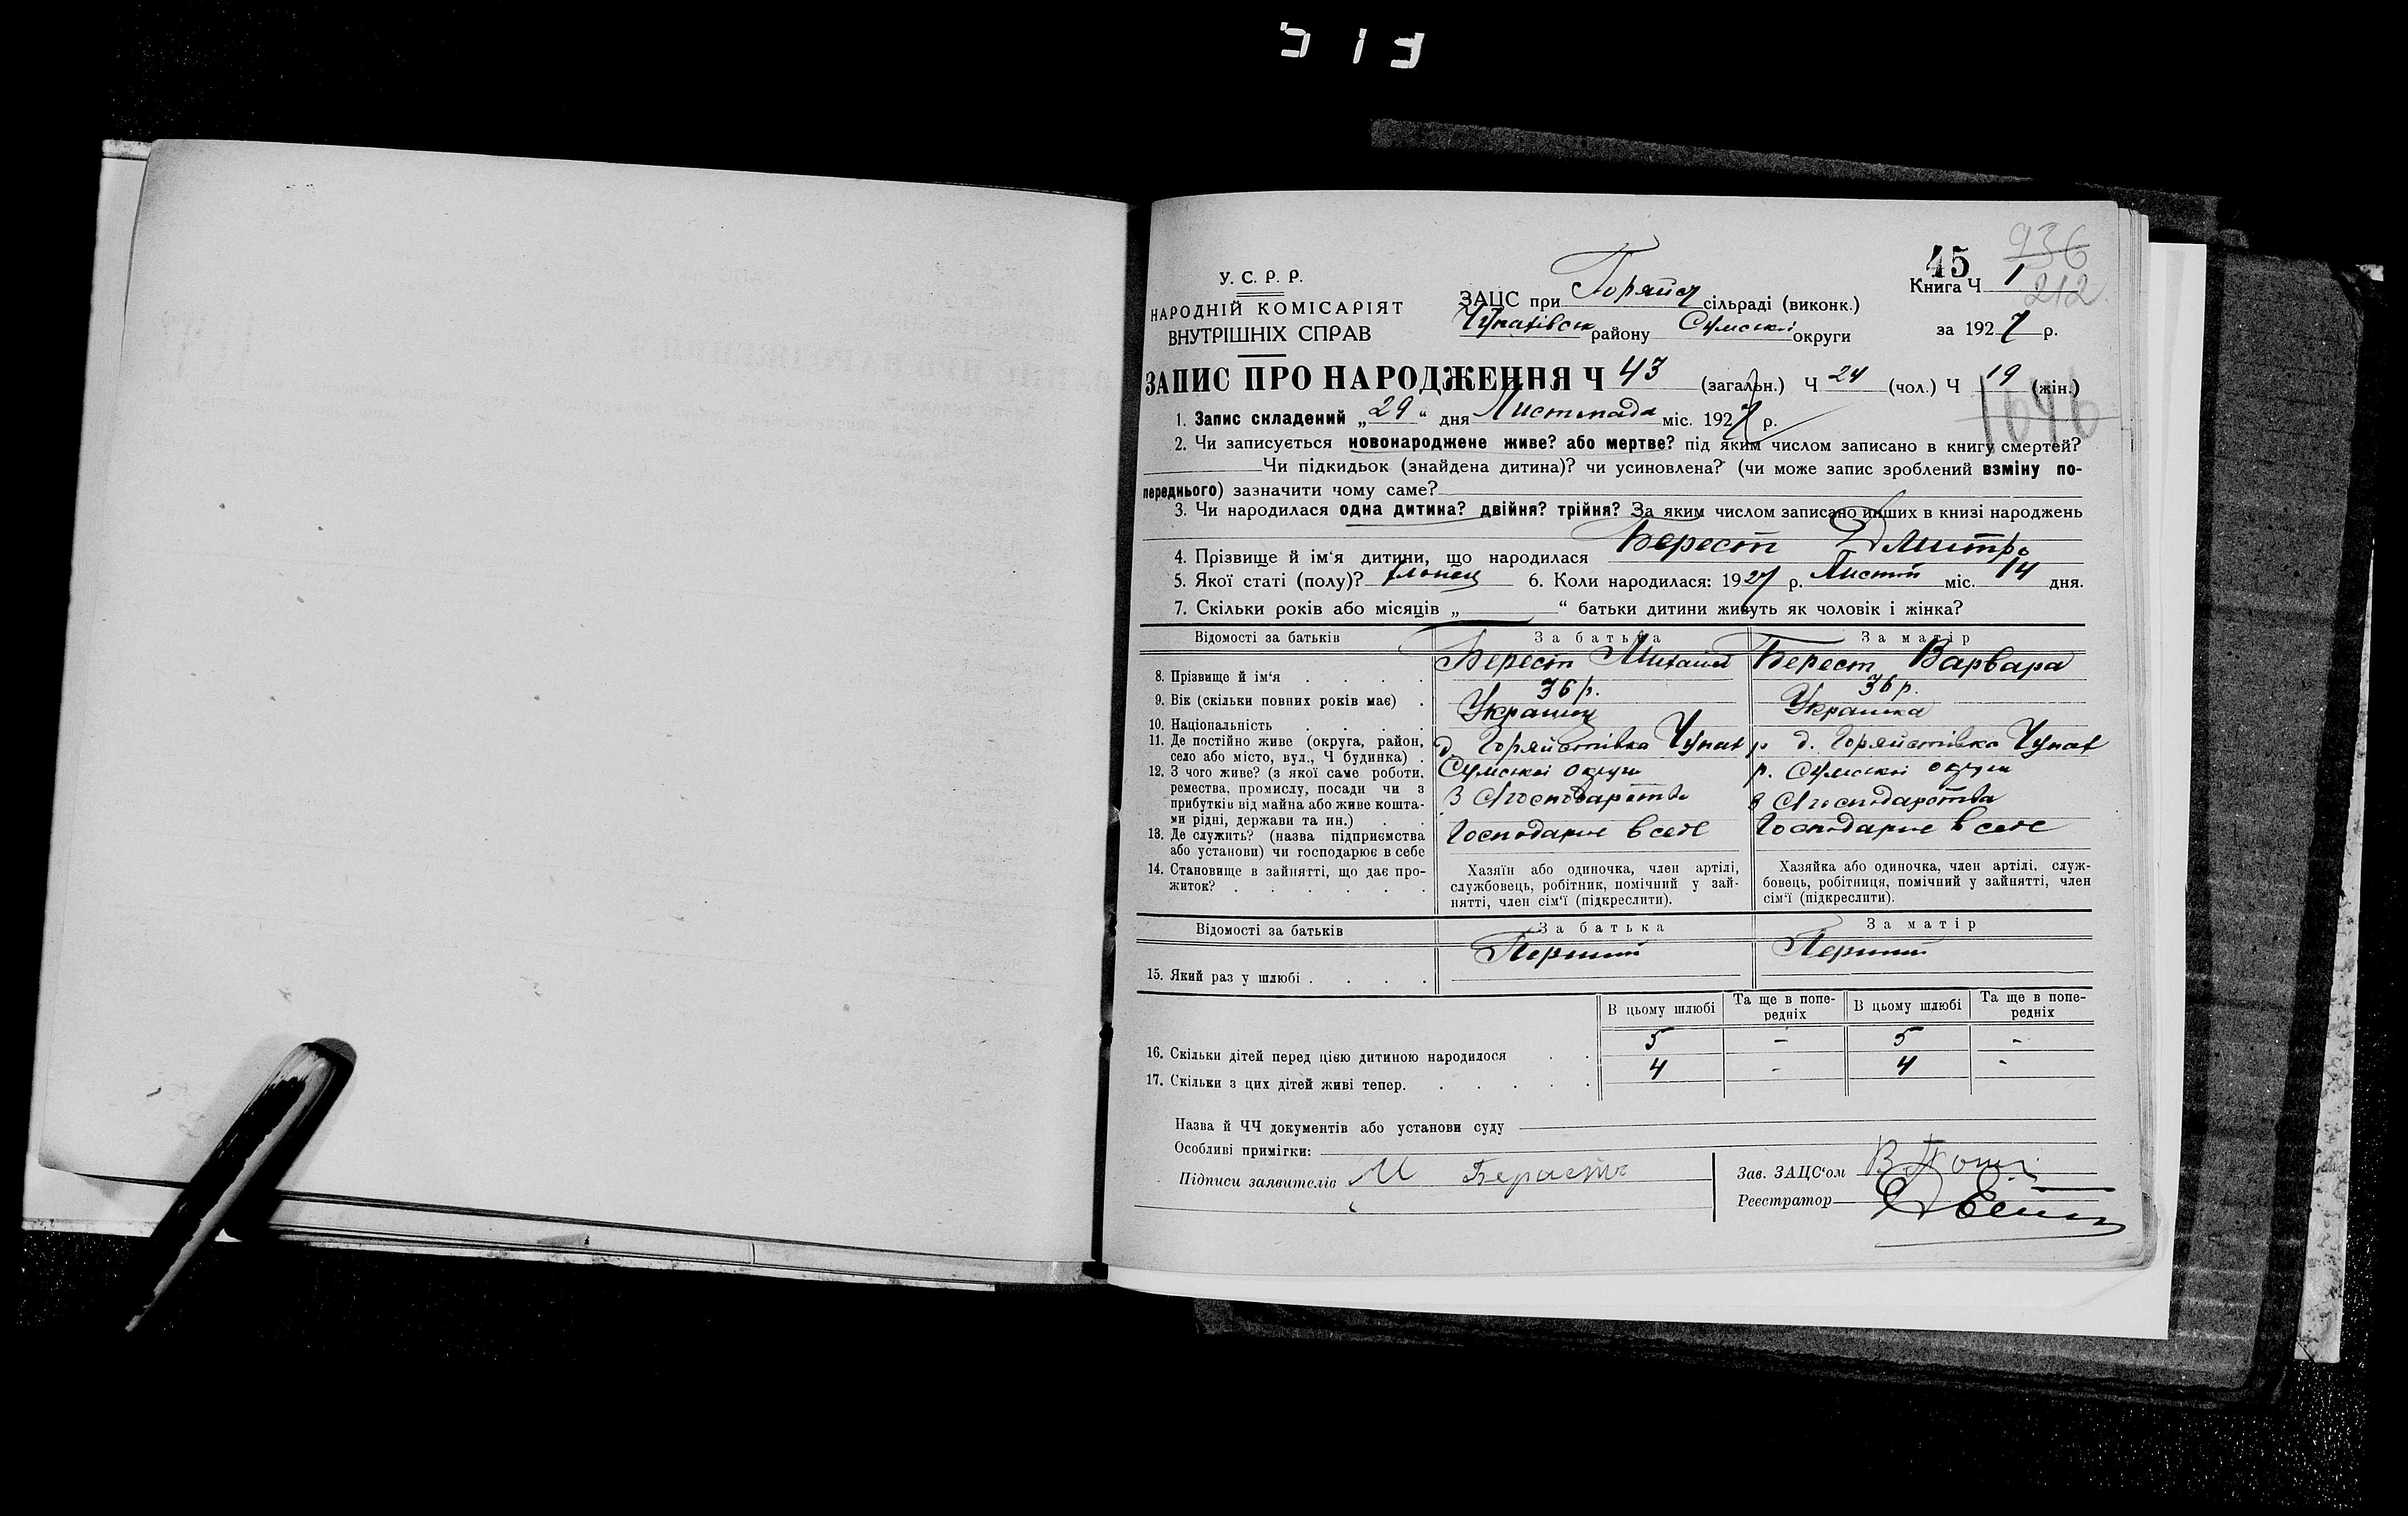 У. С. Р. Р.
НАРОДНІЙ КОМІСАРІЯТ
ВНУТРІШНІХ СПРАВ
45
936
212
Книга Ч 1
ЗАЦС при Горяйст сільраді (виконк.)
Чупахівськ району Сумської округи
за 1927 р.
ЗАПИС ПРО НАРОДЖЕННЯ Ч 43 (загальн.) Ч 24 (чол.) Ч 19 (жін.)
1646
1. Запис складений „29“ дня Листопада міс. 1927 р.
2. Чи записується новонароджене живе? або мертве? під яким числом записано в книгу смертей?
Чи підкидьок (знайдена дитина)? чи усиновлена? (чи може запис зроблений взміну по-
переднього) зазначити чому саме?
3. Чи народилася одна дитина? двійня? трійня? За яким числом записано инших в книзі народжень
4. Прізвище й ім'я дитини, що народилася Берест Дмитро
5. Якої статі (полу)? хлопец 6. Коли народилася: 1927 р. Листоп міс. 14 дня.
7. Скільки років або місяців „ “ батьки дитини живуть як чоловік і жінка?
Відомості за батьків За батька За матір
8. Прізвище й ім'я . . . . Берест Михайло Берест Варвара
9. Вік (скільки повних років має) . 36 р. 36 р.
10. Національність . . . . Украинц Украинка
11. Де постійно живе (округа, район, д. Горяйстівка Чупах р д. Горяйстівка Чупах
село або місто, вул., Ч будинка) . Сумської округи р. Сумської округи
12. З чого живе? (з якої саме роботи,
ремества, промислу, посади чи з З С/господарства З С/господарства
прибутків від майна або живе кошта-
ми рідні, держави та ин.) . .
13. Де служить? (назва підприємства Господарює в себе Господарює в себе
або установи) чи господарює в себе
14. Становище в зайнятті, що дає про- Хазяїн або одиночка, член артілі, Хазяйка або одиночка, член артілі, служ-
житок? . . . . . . службовець, робітник, помічний у зай- бовець, робітниця, помічний у зайнятті, член
нятті, член сім'ї (підкреслити). сім'ї (підкреслити).
Відомості за батьків За батька За матір
15. Який раз у шлюбі . . . . Перший Перший
В цьому шлюбі Та ще в попе- В цьому шлюбі Та ще в попе-
редніх редніх
16. Скільки дітей перед цією дитиною народилося . . 5 - 5 -
17. Скільки з цих дітей живі тепер. . . . . . 4 - 4 -
Назва й ЧЧ документів або установи суду
Особливі примітки:
Підписи заявителів М Берестъ
Зав. ЗАЦС'ом
Реєстратор